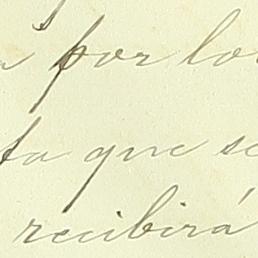 por lo
ta que se
recibirá